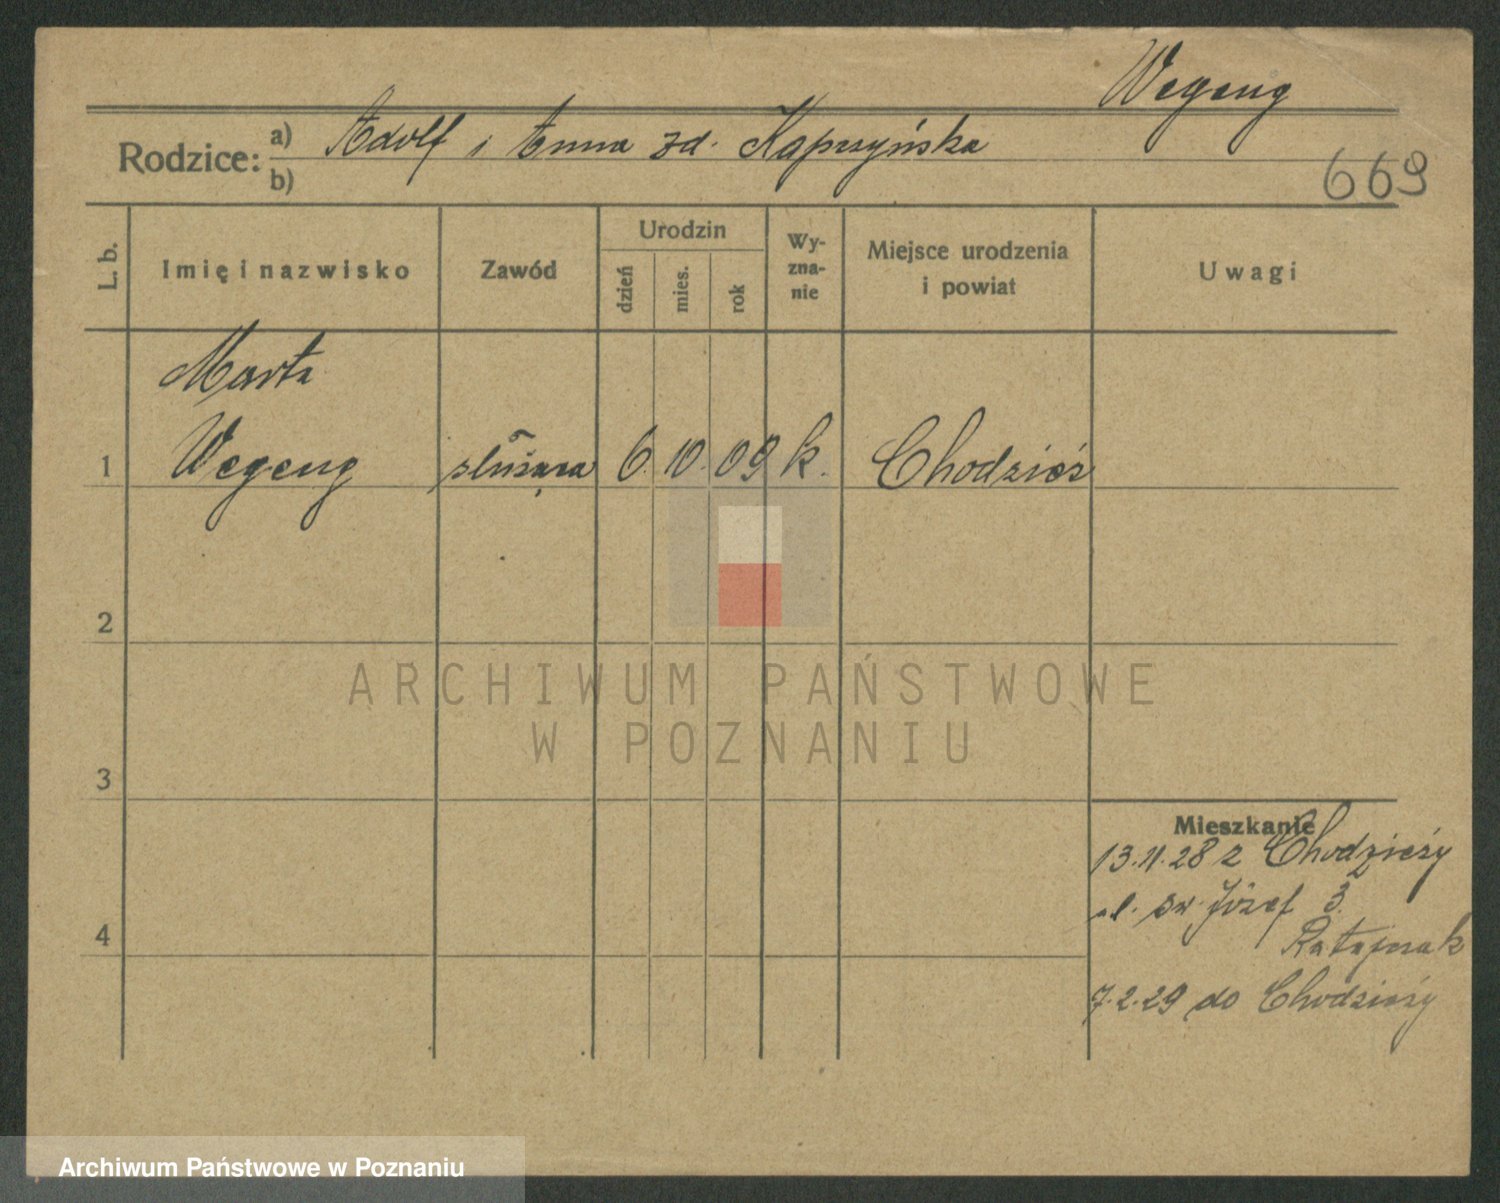 Wegeng
Rodzice: a) Adolf i Anna zd. Kaprzyńska
b)
669
L. b. Imię i nazwisko Zawód Urodzin dzień mies. rok Wy-zna-nie Miejsce urodzenia i powiat Uwagi
Marta
1 Wegeng służąca 6. 10. 09 k. Chodzież
2
3
4
Mieszkanie
13.11.28 z Chodzieży
ul. św. Józef 3.
Ratajczak
7.2.29 do Chodzieży
ARCHIWUM PAŃSTWOWE
W POZNANIU
Archiwum Państwowe w Poznaniu